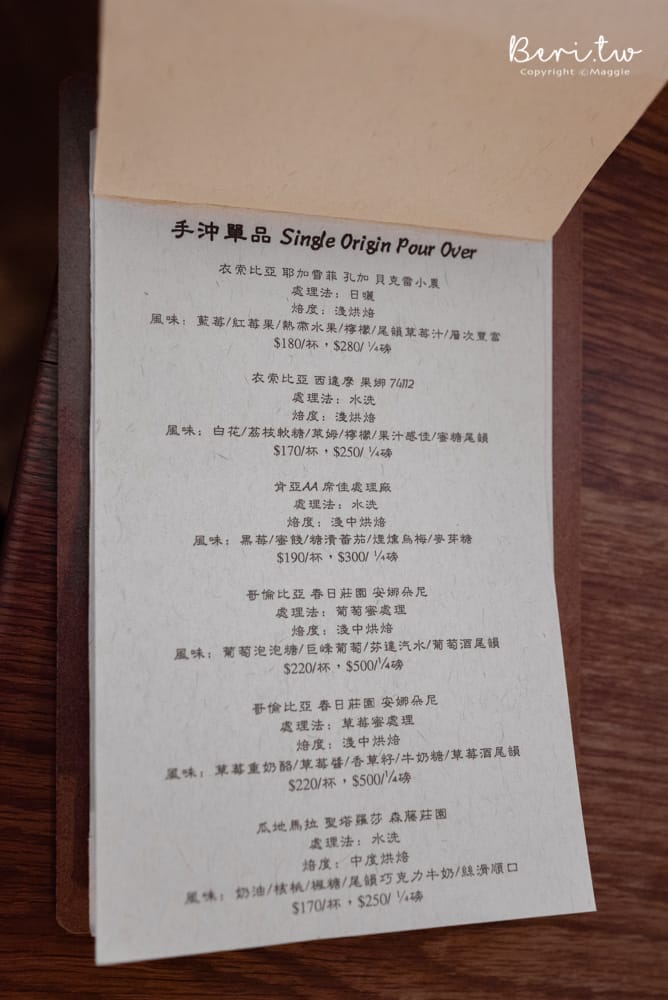 Beri.tw
Copyright ©Maggie
手沖單品 Single Origin Pour Over
衣索比亞 耶加雪菲 孔加 貝克雷小農
處理法：日曬
焙度：淺烘焙
風味：藍莓/紅莓果/熱帶水果/檸檬/尾韻草莓汁/層次豐富
$180/杯，$280/ ¼磅
衣索比亞 西達摩 果娜 74112
處理法：水洗
焙度：淺烘焙
風味：白花/荔枝軟糖/萊姆/檸檬/果汁感佳/蜜糖尾韻
$170/杯，$250/ ¼磅
肯亞AA 席佳處理廠
處理法：水洗
焙度：淺中烘焙
風味：黑莓/蜜餞/糖漬蕃茄/煙燻烏梅/麥芽糖
$190/杯，$300/ ¼磅
哥倫比亞 春日莊園 安娜朵尼
處理法：葡萄蜜處理
焙度：淺中烘焙
風味：葡萄泡泡糖/巨峰葡萄/芬達汽水/葡萄酒尾韻
$220/杯，$500/¼磅
哥倫比亞 春日莊園 安娜朵尼
處理法：草莓蜜處理
焙度：淺中烘焙
風味：草莓重奶酪/草莓醬/香草籽/牛奶糖/草莓酒尾韻
$220/杯，$500/¼磅
瓜地馬拉 聖塔羅莎 森藤莊園
處理法：水洗
焙度：中度烘焙
風味：奶油/核桃/楓糖/尾韻巧克力牛奶/絲滑順口
$170/杯，$250/ ¼磅